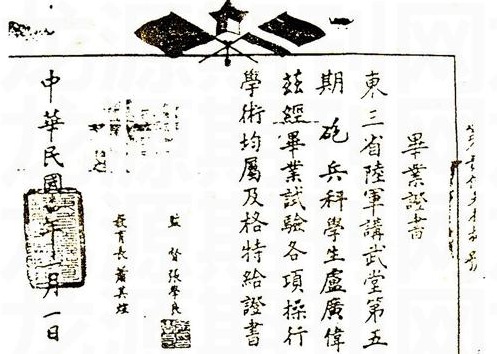 畢業證書
東三省陸軍講武堂第五
期 砲兵科學生盧廣偉
茲經畢業試驗各項操行
學術均屬及格特給證書
監督張學良
教育長蕭其煊
中華民國年月一日